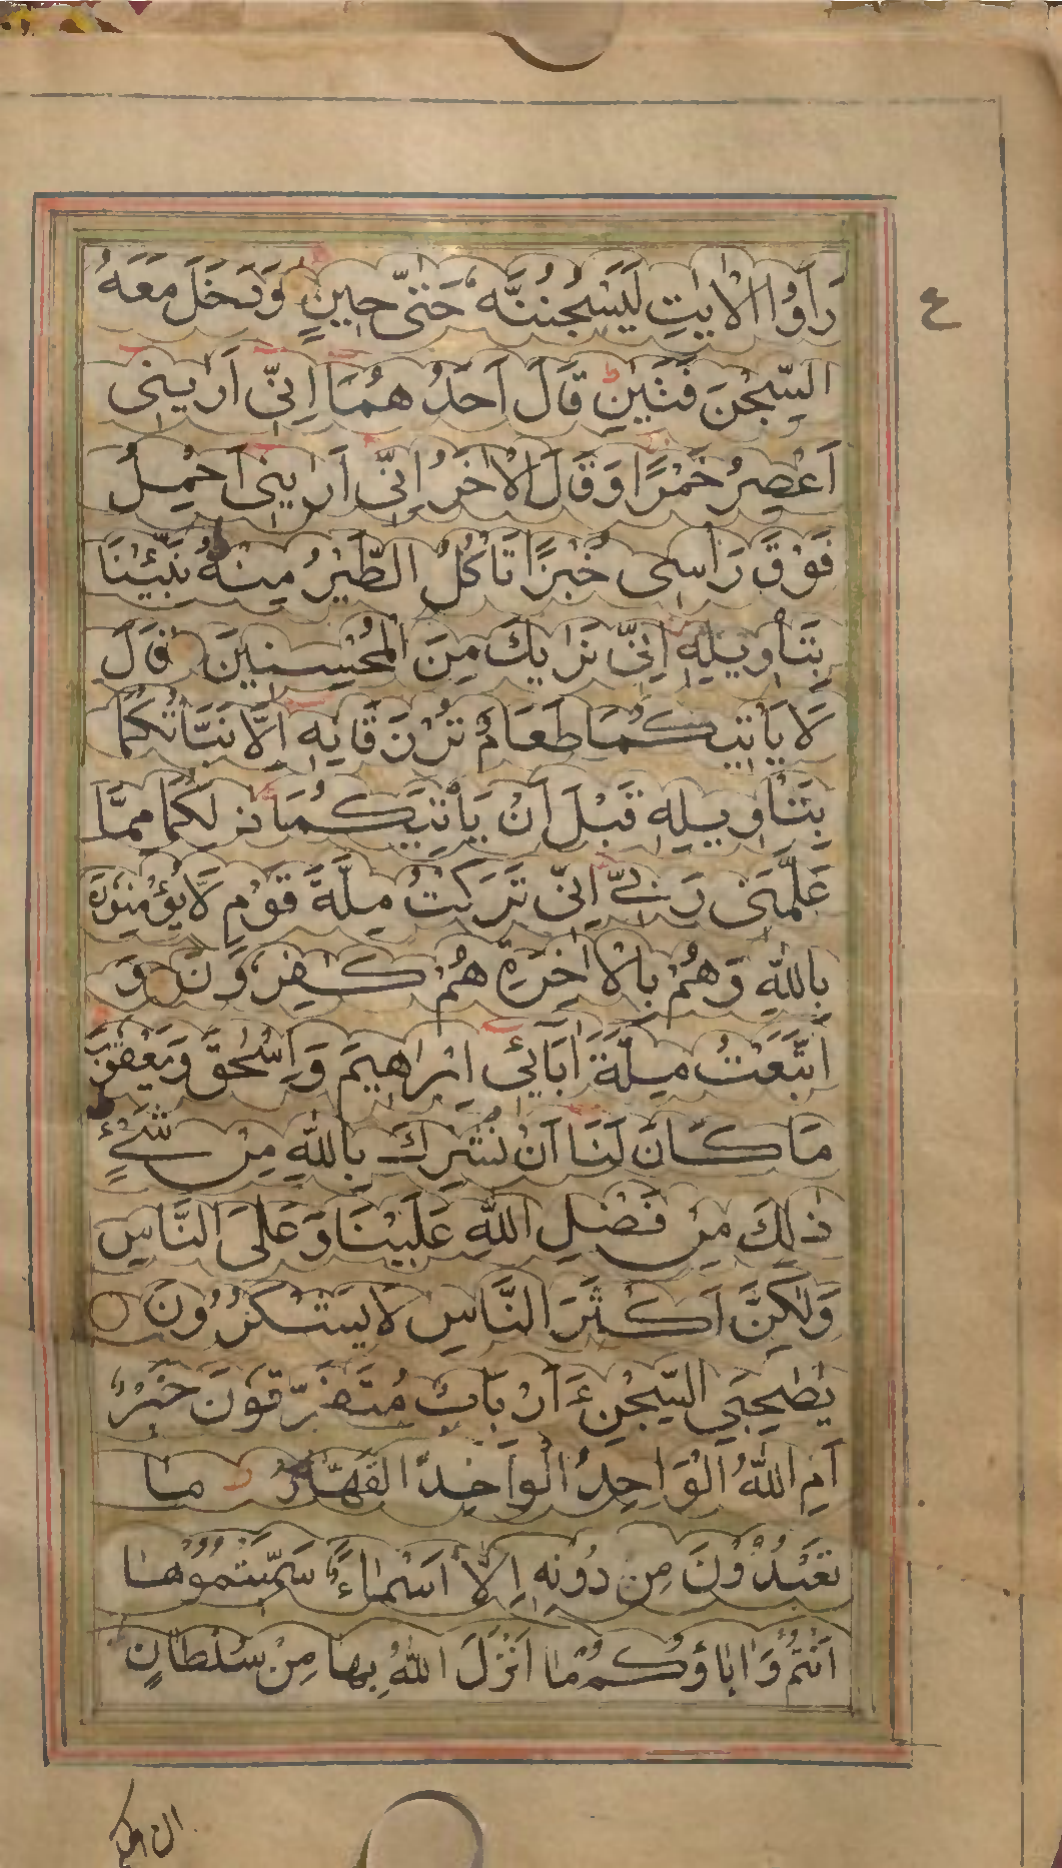 رَاَوُا الْاٰيٰتِ لَيَسْجُنُنَّهٗ حَتّٰى حِيْنٍ وَدَخَلَ مَعَهُ
ع
السِّجْنَ فَتَيٰنِ قَالَ اَحَدُهُمَا اِنِّى اَرٰينِى
اَعْصِرُ خَمْرًا وَقَالَ الْاٰخَرُ اِنِّى اَرٰينِى اَحْمِلُ
فَوْقَ رَاْسِى خُبْزًا تَاْكُلُ الطَّيْرُ مِنْهُ نَبِّئْنَا
بِتَاْوِيلِهِ اِنَّا نَرٰيكَ مِنَ الْمُحْسِنِينَ قَالَ
لَا يَاْتِيكُمَا طَعَامٌ تُرْزَقَانِهِ اِلَّا نَبَّاْتُكُمَا
بِتَاْوِيلِهِ قَبْلَ اَنْ يَاْتِيَكُمَا ذٰلِكُمَا مِمَّا
عَلَّمَنِى رَبِّى اِنِّى تَرَكْتُ مِلَّةَ قَوْمٍ لَا يُؤْمِنُوْنَ
بِاللّٰهِ وَهُمْ بِالْاٰخِرَةِ هُمْ كٰفِرُوْنَ وَ
اتَّبَعْتُ مِلَّةَ اٰبَائِى اِبْرٰهِيمَ وَاِسْحٰقَ وَيَعْقُوْبَ
مَا كَانَ لَنَا اَنْ نُشْرِكَ بِاللّٰهِ مِنْ شَىْءٍ
ذٰلِكَ مِنْ فَضْلِ اللّٰهِ عَلَيْنَا وَعَلَى النَّاسِ
وَلٰكِنَّ اَكْثَرَ النَّاسِ لَا يَشْكُرُوْنَ
يٰصٰحِبَىِ السِّجْنِ ءَاَرْبَابٌ مُتَفَرِّقُوْنَ خَيْرٌ
اَمِ اللّٰهُ الْوَاحِدُ الْوَاحِدُ الْقَهَّارُ مَا
تَعْبُدُوْنَ مِنْ دُوْنِهِ اِلَّا اَسْمَاءً سَمَّيْتُمُوْهَا
اَنْتُمْ وَاٰبَاؤُكُمْ مَا اَنْزَلَ اللّٰهُ بِهَا مِنْ سُلْطَانٍ